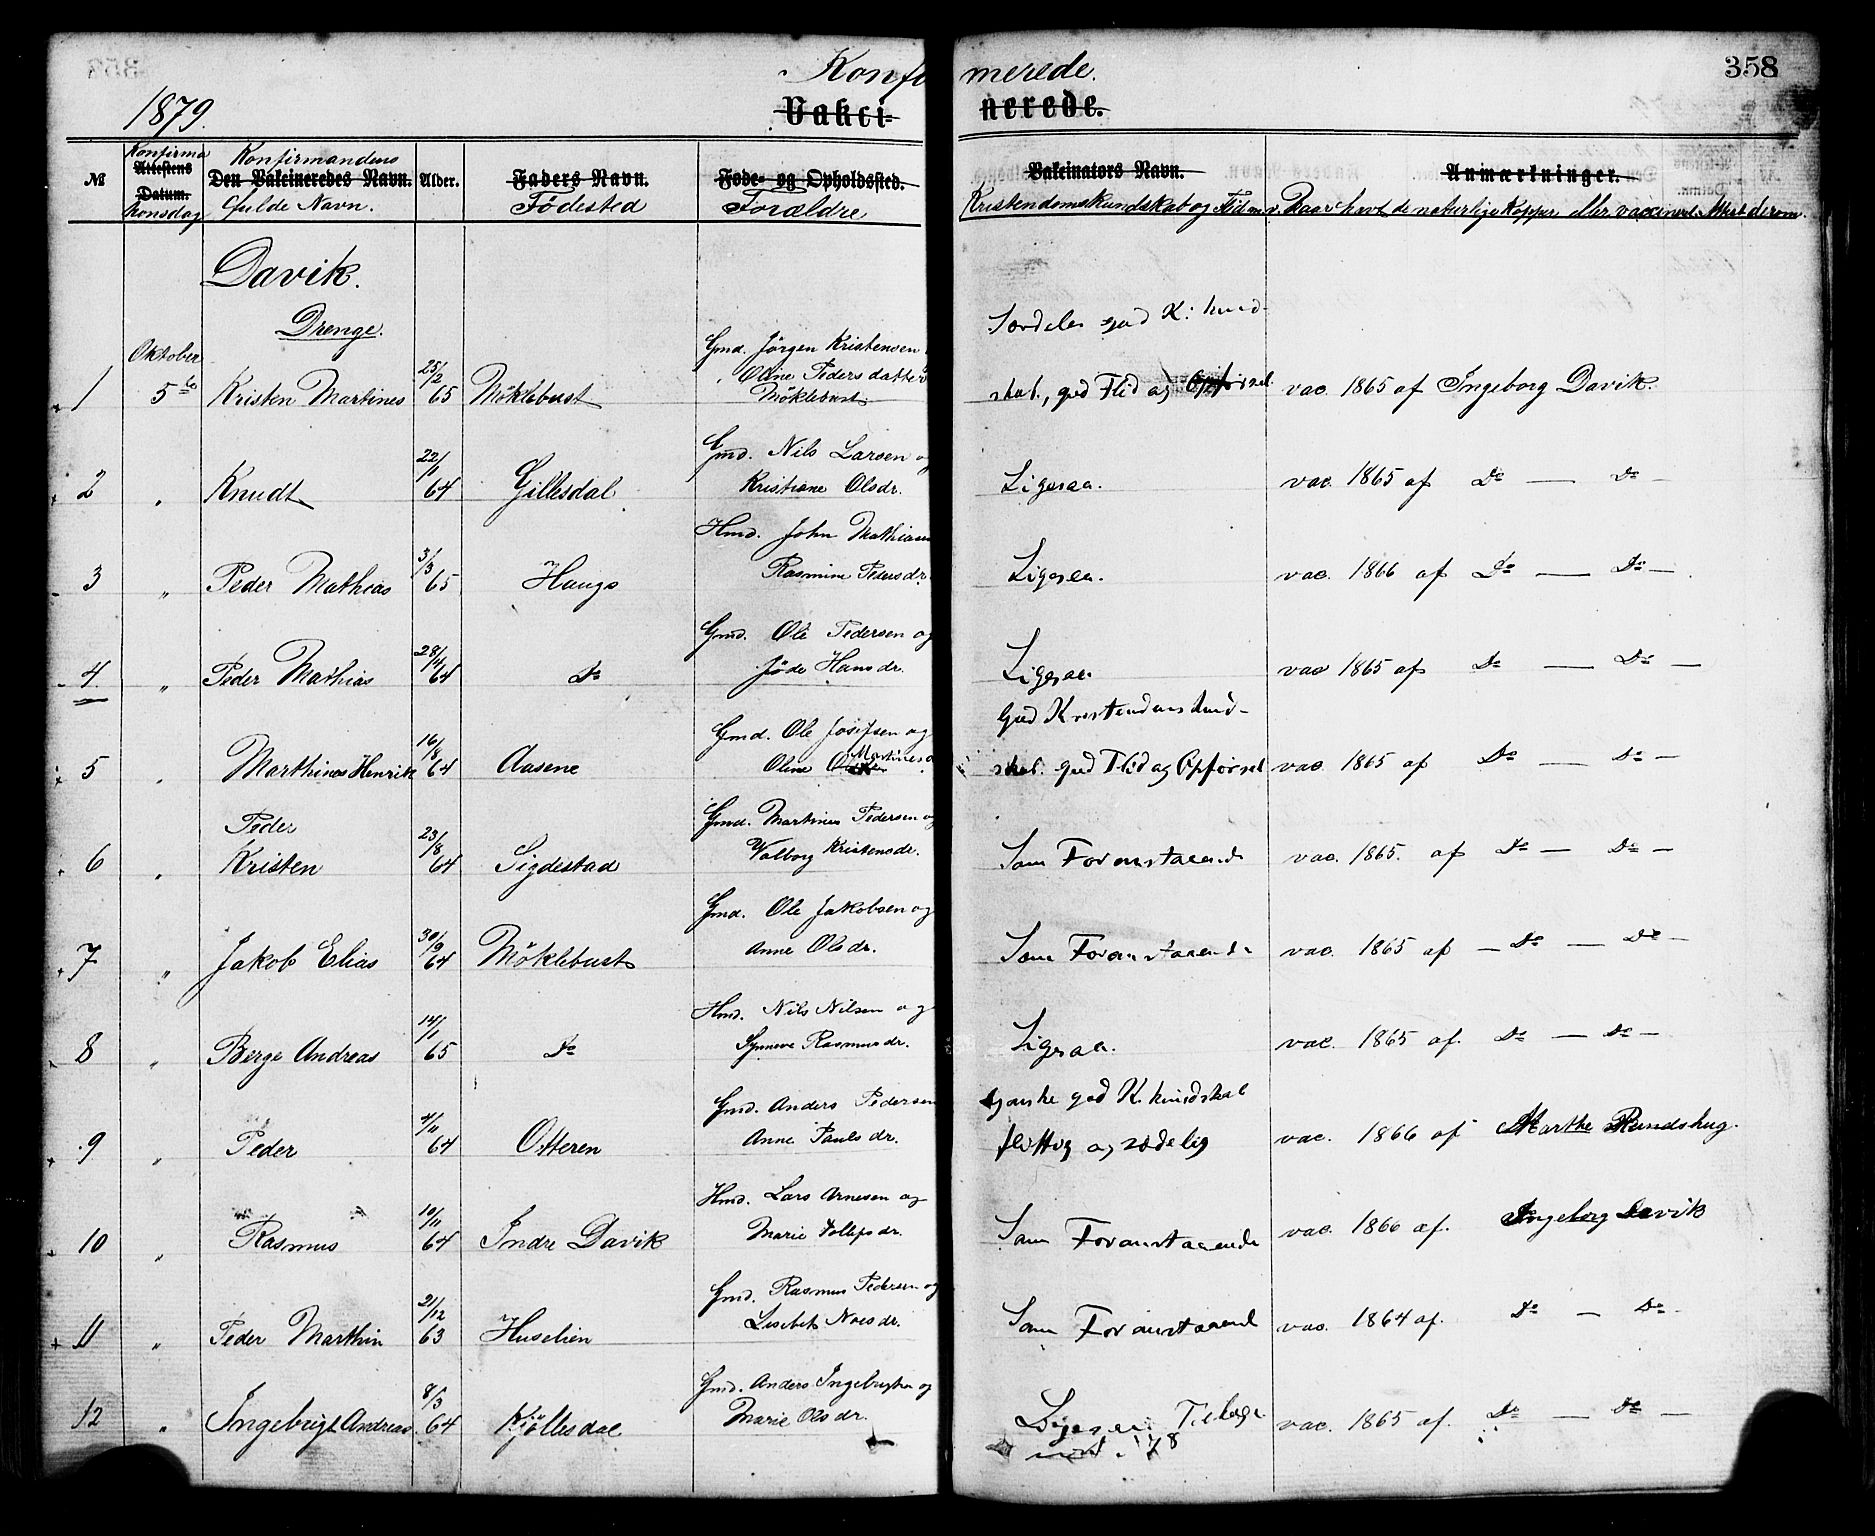 358
Konfirmerede.
1879.
Vakcinerede.
№ Konfirma Attestens Datum. Konfirmandens Den Vakcineredes Navn. Alder. Faders Navn. Føde- og Opholdssted. Vakcinators Navn. Anmærkninger.
Fulde Navn. Födested Forældre Kristendomskundskab og Flid m.v. Naar havt de naturlige Kopper eller vaccineret. Attest derom.
Davik.
Drenge.
Særdeles god K: kund-
Oktober 25/2 Gmd. Jörgen Kristensen
1 5te Kristen Martines 65 Möklebust Oline Pedersdatter Möklebust skab, god Flid og Opførsel vac. 1865 af Ingeborg Davik.
22/1 Gmd. Nils Larsen og
2 " Knudt 64 Gillesdal Kristiane Olsdr. Ligesaa. vac. 1865 af Do — Do —
3/3 Hmd. John Mathiasen
3 " Peder Mathias 65 Hauge Rasmine Pedersdr. Ligesaa. vac. 1866 af Do — Do —
28/4 Gmd. Ole Pedersen og
4 " Peder Mathias 64 Do Jöde Hansdr. Ligesaa vac 1865 af Do — Do —
God Kristendomskund-
16/8 Gmd. Ole Josefsen og
5 " Marthines Henrik 64 Aasene Oline Martinesd skab. god Flid og Opførsel vac. 1865 af Do — Do —
Peder 23/8 Gmd. Martines Pedersen og
6 " Kristen 64 Sigdestad Valborg Kristensdr. Som Foranstaaende vac. 1865. af Do — Do —
30/9 Gmd. Ole Jakobsen og
7 " Jakob Elias 64 Möklebust Anne Olsdr. Som Foranstaaende vac. 1865 af — Do — Do —
14/1 Hmd. Nils Nilsen og
8 " Berge Andreas 65 Do Synneve Rasmusdr. Ligesaa. vac. 1865 af. Do — Do —
4/11 Gmd. Anders Pedersen Ganske god K. kundskab
9 " Peder 64 Otteren Anne Paulsdr. flittig og sædelig vac. 1866 af Marthe Rundshug.
10/11 Hmd. Lars Arnesen og
10 " Rasmus 64 Indre Davik Marie Tollefsdr. Som Foranstaaende vac. 1866 af. Ingeborg Davik
21/12 Gmd. Rasmus Pedersen og
11 " Peder Marthin 63 Huselien Lisebet Noesdr. Som Foranstaaend vac. 1864 af. Do — Do
8/3 Gmd. Anders Ingebrigtsen og
12 " Ingebrigt Andreas 64 Kjöllesdal Marie Olsdr. Ligesaa. vac. 1865 af. Do — Do —